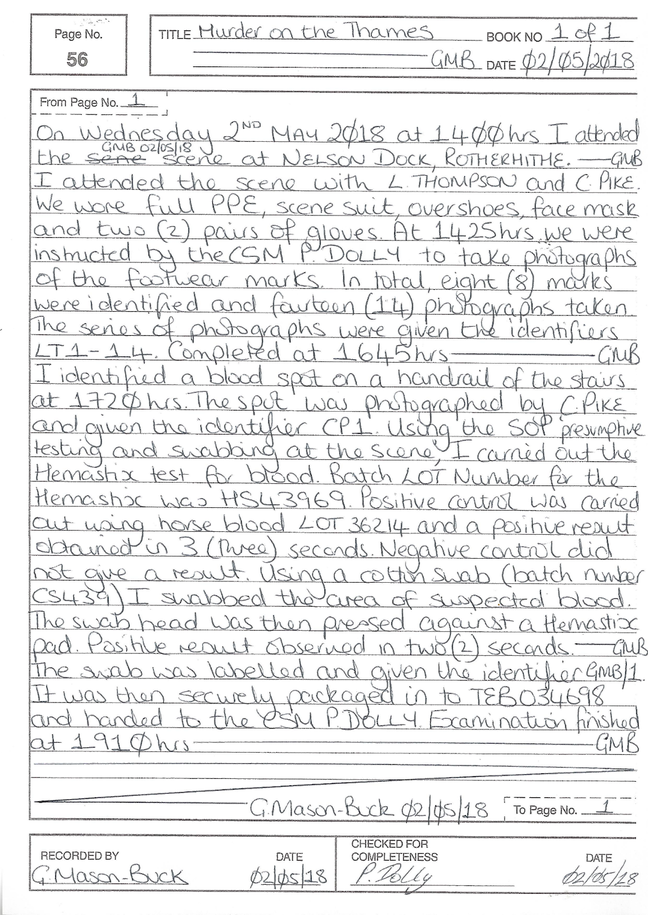 Page No.
56
TITLE Murder on the Thames
BOOK NO 1 of 1
GMB DATE 02/05/2018
From Page No. 1
On Wednesday 2ND MAY 2018 at 1400hrs I attended
GMB 02/05/18
the sene scene at NELSON DOCK, ROTHERHITHE. GMB
I attended the scene with L. THOMPSON and C. PIKE.
We wore full PPE, scene suit, overshoes, face mask
and two (2) pairs of gloves. At 1425hrs, we were
instructed by the CSM P. DOLLY to take photographs
of the footwear marks. In total, eight (8) marks
were identified and fourteen (14) photographs taken
The series of photographs were given the identifiers
LT1-14. Completed at 1645hrs GMB
I identified a blood spot on a handrail of the stairs
at 1720hrs. The spot was photographed by C. PIKE
and given the identifier CP1. Using the SOP 'presumptive
testing and swabbing at the scene', I carried out the
Hemastix test for blood. Batch LOT Number for the
Hemastix was HS43969. Positive control was carried
out using horse blood LOT 36214 and a positive result
obtained in 3 (three) seconds. Negative control did
not give a result. Using a cotton swab (batch number
CS439) I swabbed the area of suspected blood.
The swab head was then pressed against a Hemastix
pad. Positive result observed in two (2) seconds. GMB
The swab was labelled and given the identifier GMB/1.
It was then securely packaged in to TEB034698
and handed to the CSM P. DOLLY. Examination finished
at 1910hrs GMB
G. Mason-Buck 02/05/18
To Page No. 1
RECORDED BY
G. Mason-Buck
DATE
02/05/18
CHECKED FOR
COMPLETENESS
P. Dolly
DATE
02/05/18